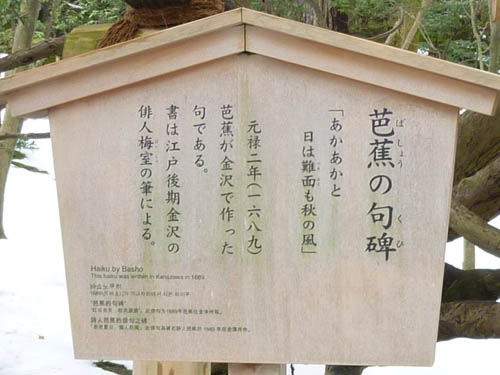 芭蕉の句碑
ばしょう くひ
「あかあかと
日は難面も秋の風」
元禄二年(一六八九)
芭蕉が金沢で作った
句である。
書は江戸後期金沢の
俳人梅室の筆による。
Haiku by Basho
This haiku was written in Kanazawa in 1689.
"芭蕉的句碑"
詩人芭蕉的俳句之碑